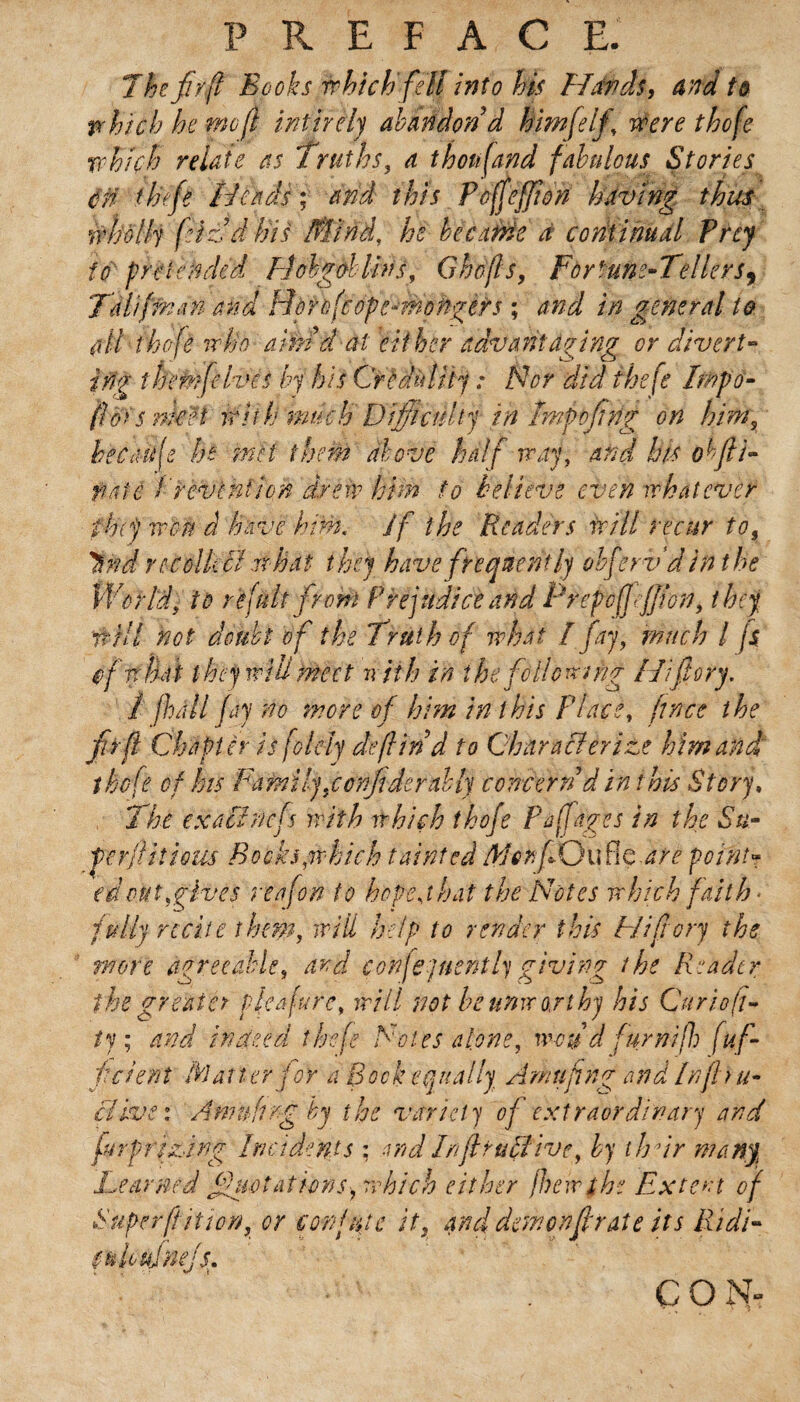 PREFACE.
The firſt Books which fell into his Hands, and to
which he moſt intirely abandon'd himſelf, were thoſe
which relate as Truths, a thouſand fabulous Stories
on theſe Heads; and this Poſſeſſion having thus
wholly ſeiz'd his Mind, he became a continual Prey
to pretended Hobgoblins, Ghoſts, Fortune-Tellers,
Taliſman and Horoſcope-mongers; and in general to
all thoſe who aim'd at either advantaging or divert-
ing themſelves by his Credulity: Nor did theſe Impo-
ſtors meet with much Difficulty in Impoſing on him,
becauſe he met them above half way, and his obſti-
nate Prevention drew him to believe even whatever
they wou'd have him. If the Readers will recur to,
and recollect what they have frequently obſerv'd in the
World, to reſult from Prejudice and Prepoſſeſſion, they
will not doubt of the Truth of what I ſay, much leſs
of what they will meet with in the following Hiſtory.
I ſhall ſay no more of him in this Place, ſince the
firſt Chapter is ſolely deſtin'd to Characterize him and
thoſe of his Family, conſiderably concern'd in this Story.
The exactneſs with which thoſe Paſſages in the Su-
perſtitious Books, which tainted Monſ. Oufle are point-
ed out, gives reaſon to hope, that the Notes which faith-
fully recite them, will help to render this Hiſtory the
more agreeable, and conſequently giving the Reader
the greater pleaſure, will not be unworthy his Curioſi-
ty; and indeed theſe Notes alone, wou'd furniſh ſuf-
ficient Matter for a Book equally Amuſing and Inſtru-
ctive: Amuſing by the variety of extraordinary and
ſurprizing Incidents; and Inſtructive, by their many
Learned Quotations, which either ſhew the Extent of
Superſtition, or confute it, and demonſtrate its Ridi-
culouſneſs.
CON-